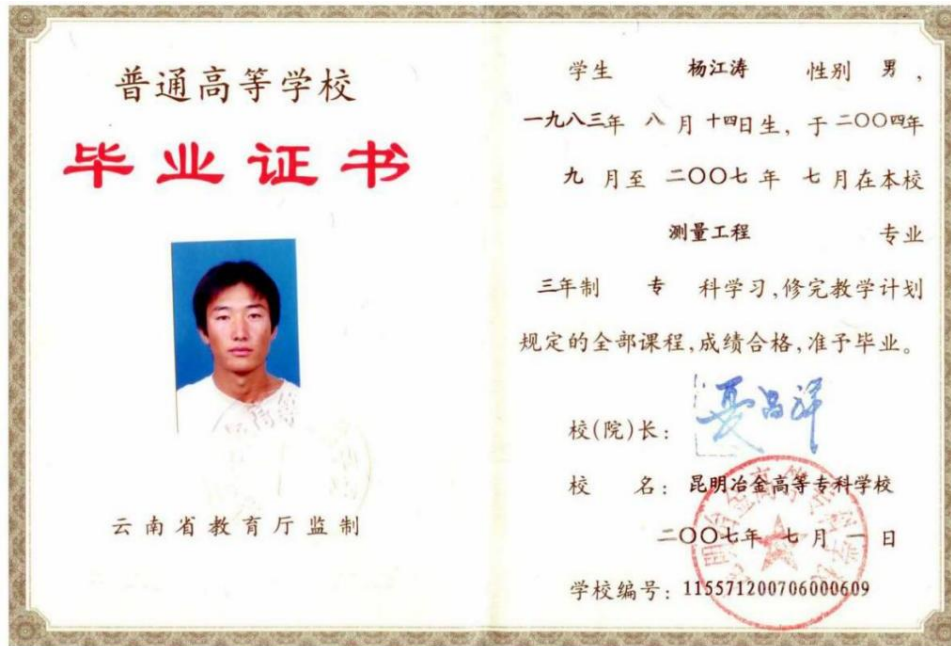 普通高等学校
毕业证书
云南省教育厅监制
学生 杨江涛 性别 男，
一九八三年 八 月 十四日生，于 二〇〇四年
九 月至 二〇〇七 年 七 月在本校
测量工程 专业
三年制 专 科学习，修完教学计划
规定的全部课程，成绩合格，准予毕业。
校(院)长： 夏昌祥
校 名： 昆明冶金高等专科学校
二〇〇七年 七 月 一 日
学校编号：115571200706000609
昆明冶金高等专科学校